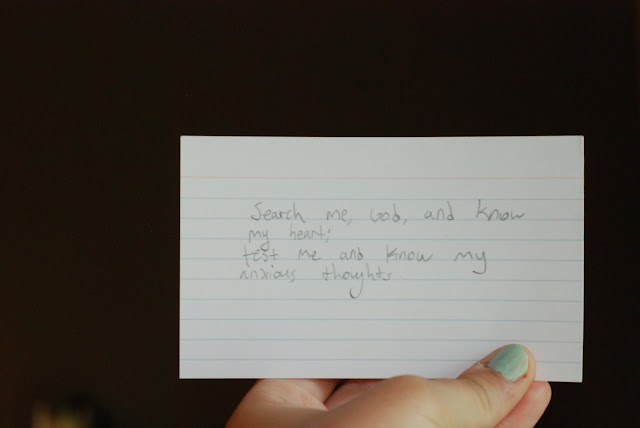 Search me, God, and know
my heart;
test me and know my
anxious thoughts.